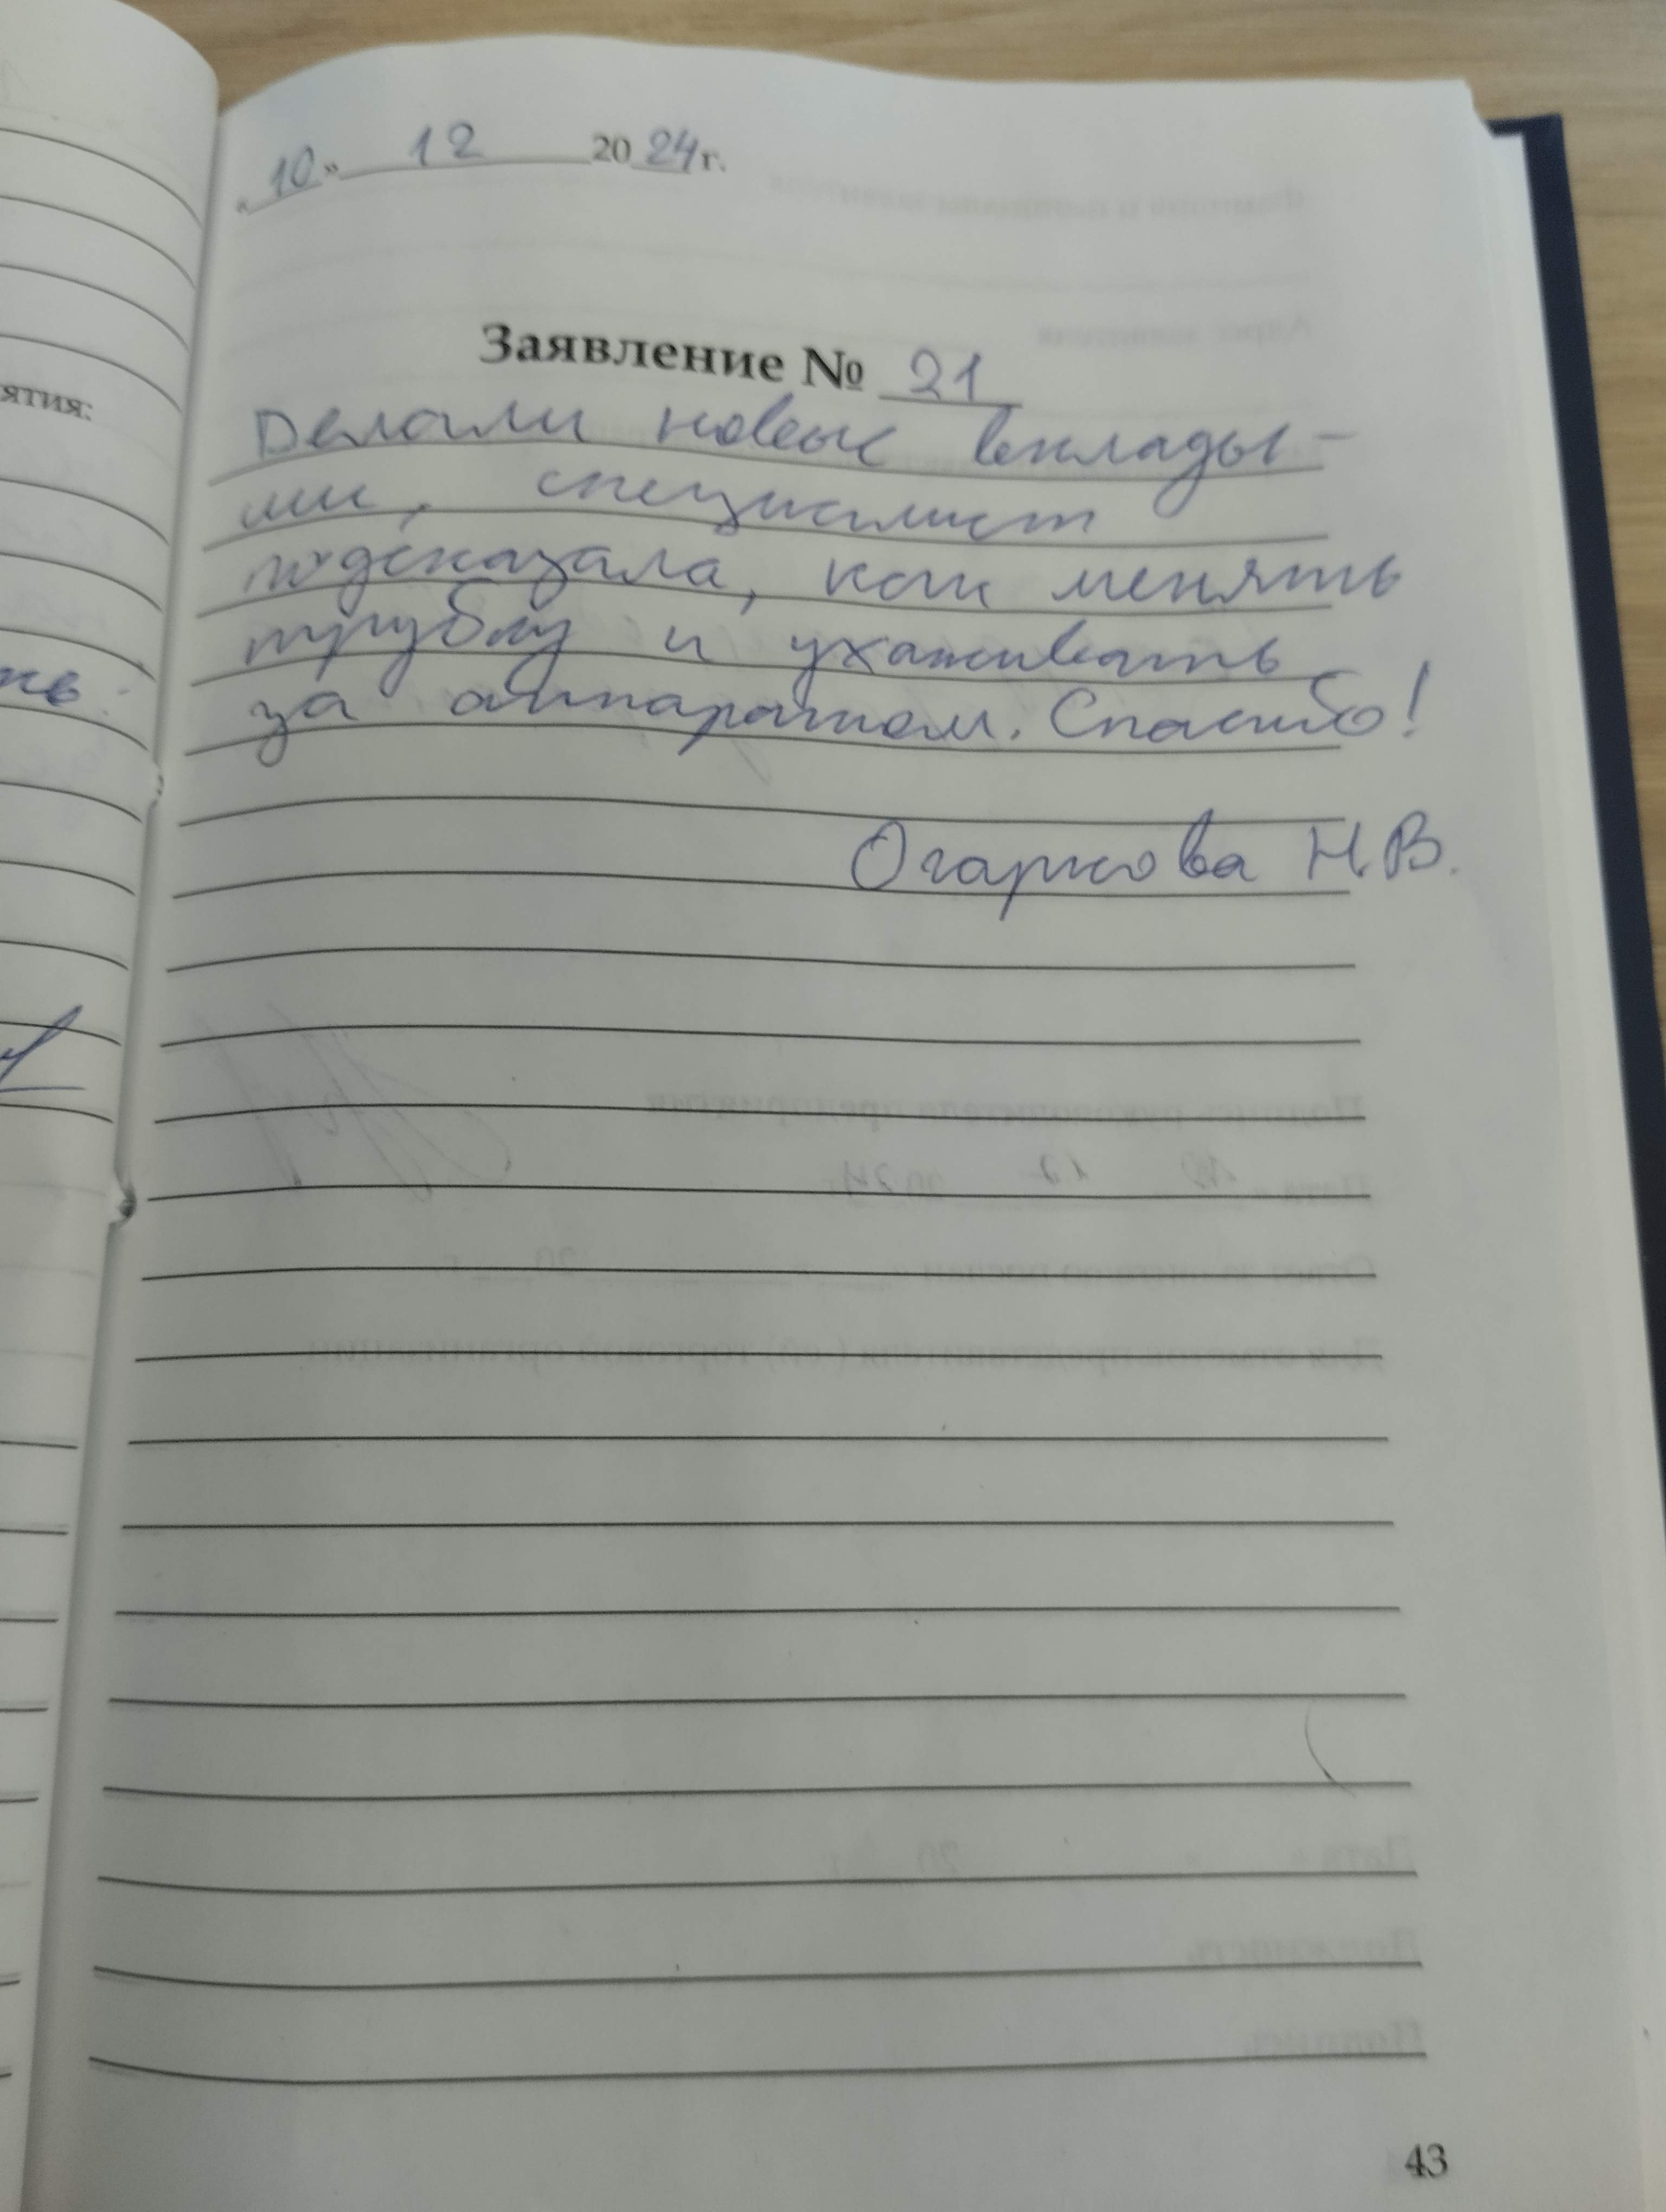 «10» 12 2024 г.
Заявление № 21
Делали новые вклады-
ши, специалист
подсказала, как менять
трубку и ухаживать
за аппаратом. Спасибо!
Огаркова Н.В.
ятия:
43